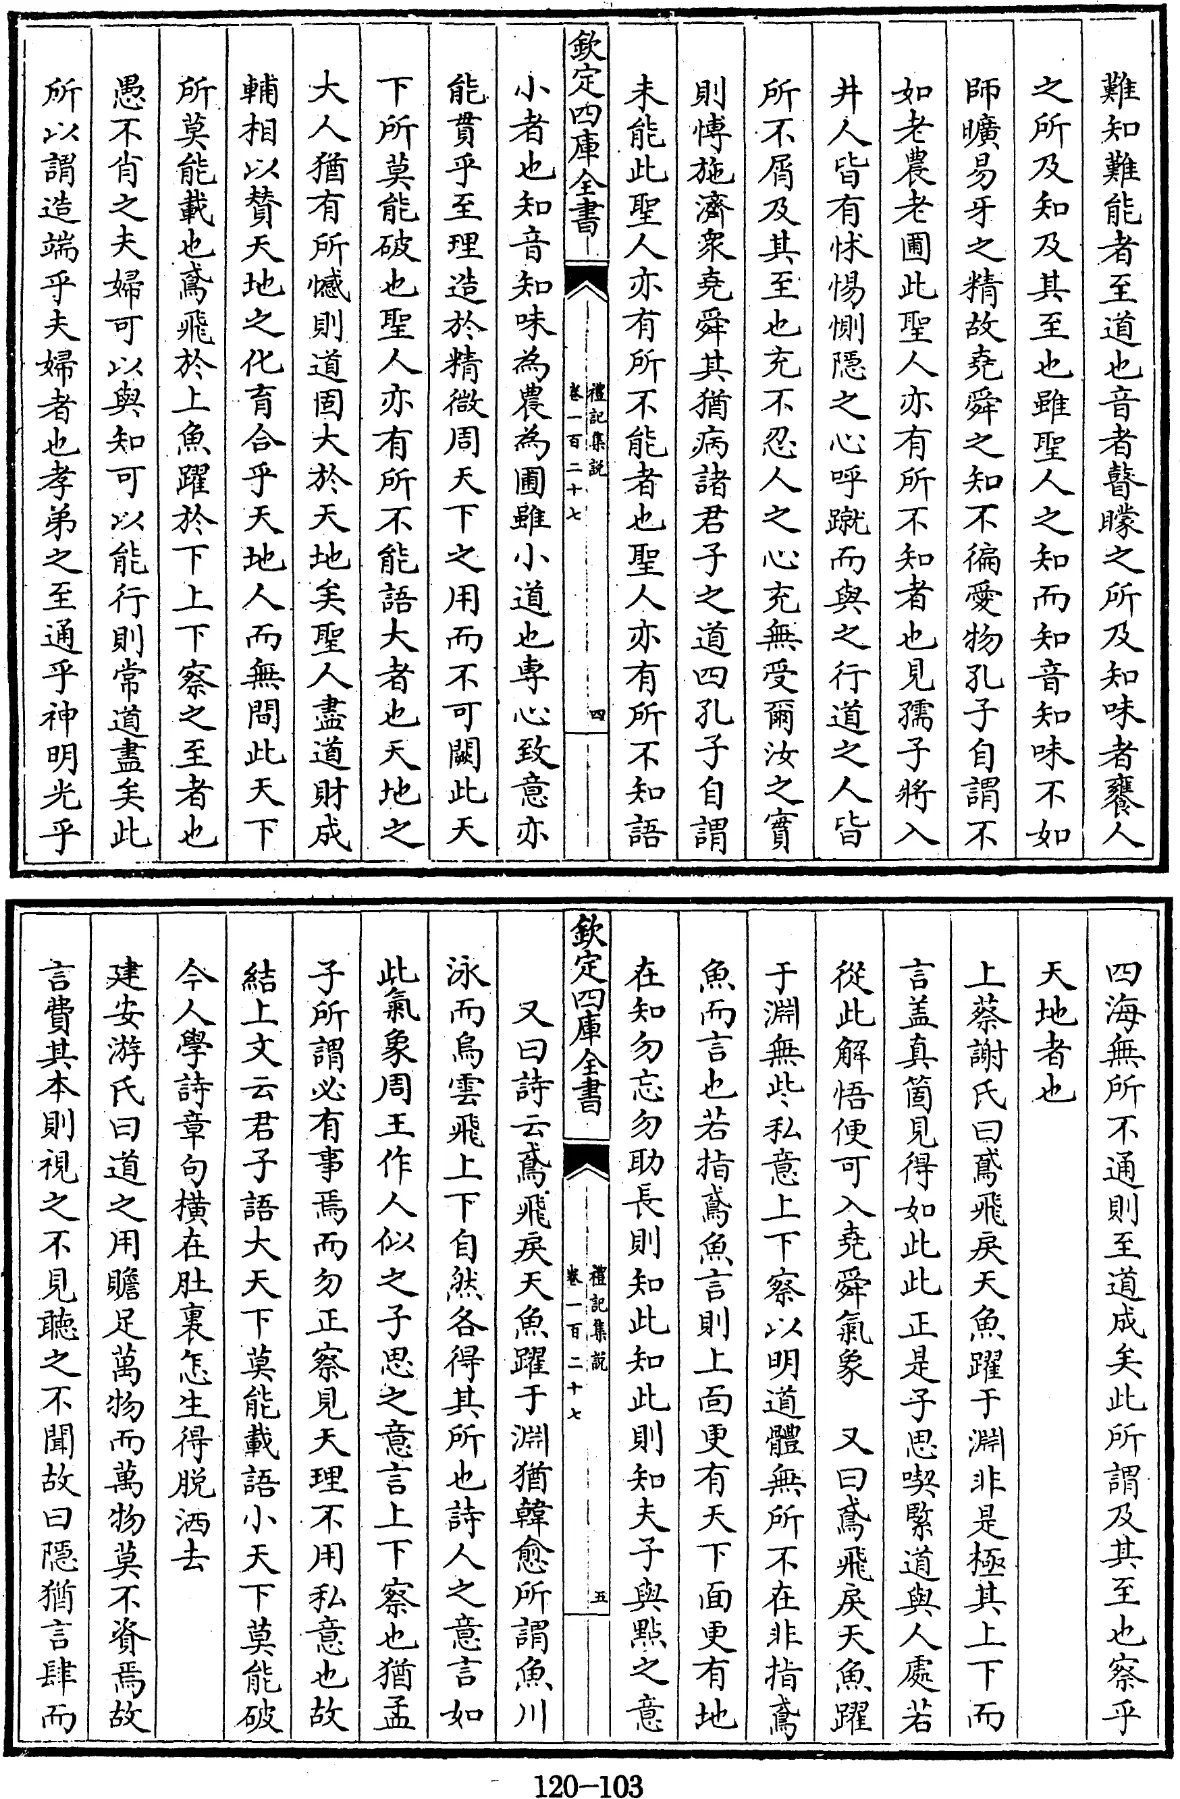 難知難能者至道也音者瞽矇之所及知味者饔人
之所及知及其至也雖聖人之知而知音知味不如
師曠易牙之精故堯舜之知不徧愛物孔子自謂不
如老農老圃此聖人亦有所不知者也見孺子將入
井人皆有怵惕惻隠之心呼蹴而與之行道之人皆
所不屑及其至也充不忍人之心充無受爾汝之實
則愽施濟衆堯舜其猶病諸君子之道四孔子自謂
未能此聖人亦有所不能者也聖人亦有所不知語
欽定四庫全書
禮記集説
卷一百二十七
四
小者也知音知味為農為圃雖小道也專心致意亦
能貫乎至理造於精微周天下之用而不可闕此天
下所莫能破也聖人亦有所不能語大者也天地之
大人猶有所憾則道固大於天地矣聖人盡道財成
輔相以賛天地之化育合乎天地人而無間此天下
所莫能載也鳶飛於上魚躍於下上下察之至者也
愚不肖之夫婦可以與知可以能行則常道盡矣此
所以謂造端乎夫婦者也孝弟之至通乎神明光乎
四海無所不通則至道成矣此所謂及其至也察乎
天地者也
上蔡謝氏曰鳶飛戾天魚躍于淵非是極其上下而
言盖真箇見得如此此正是子思喫緊道與人處若
從此解悟便可入堯舜氣象　又曰鳶飛戾天魚躍
于淵無些私意上下察以明道體無所不在非指鳶
魚而言也若指鳶魚言則上面更有天下面更有地
在知勿忘勿助長則知此知此則知夫子與㸃之意
欽定四庫全書
禮記集説
卷一百二十七
五
又曰詩云鳶飛戾天魚躍于淵猶韓愈所謂魚川
泳而鳥雲飛上下自然各得其所也詩人之意言如
此氣象周王作人似之子思之意言上下察也猶孟
子所謂必有事焉而勿正察見天理不用私意也故
結上文云君子語大天下莫能載語小天下莫能破
今人學詩章句横在肚裏怎生得脱洒去
建安游氏曰道之用贍足萬物而萬物莫不資焉故
言費其本則視之不見聽之不聞故曰隠猶言肆而
120-103